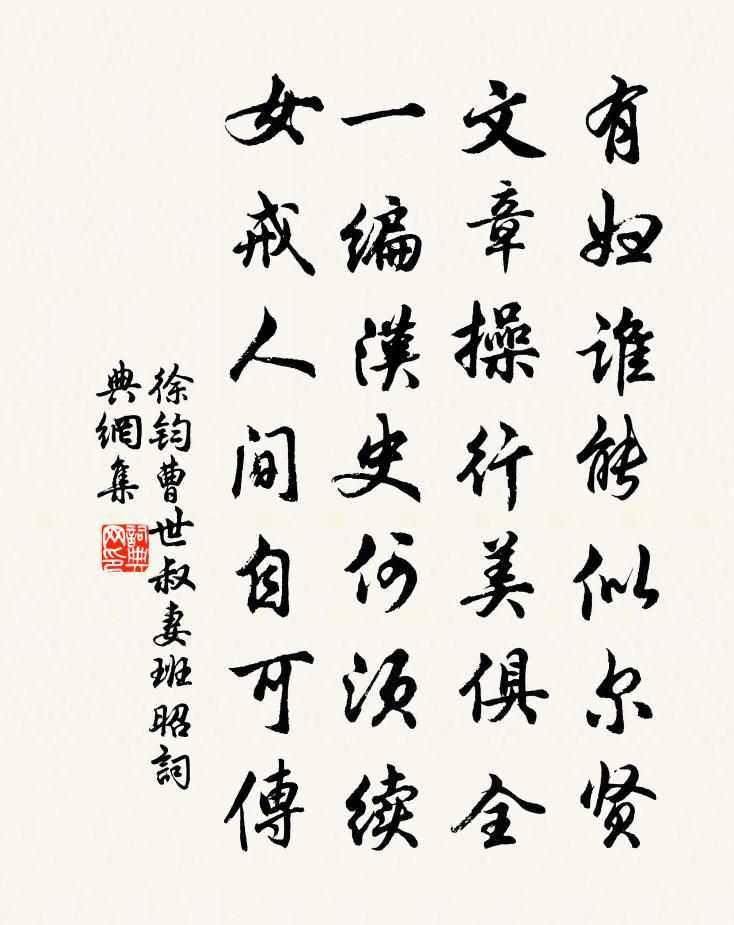 有妇谁能似尔贤
文章操行美俱全
一编漢史何须续
女戒人间自可傳
徐钧曹世叔妻班昭詞
典網集
詞典
网印